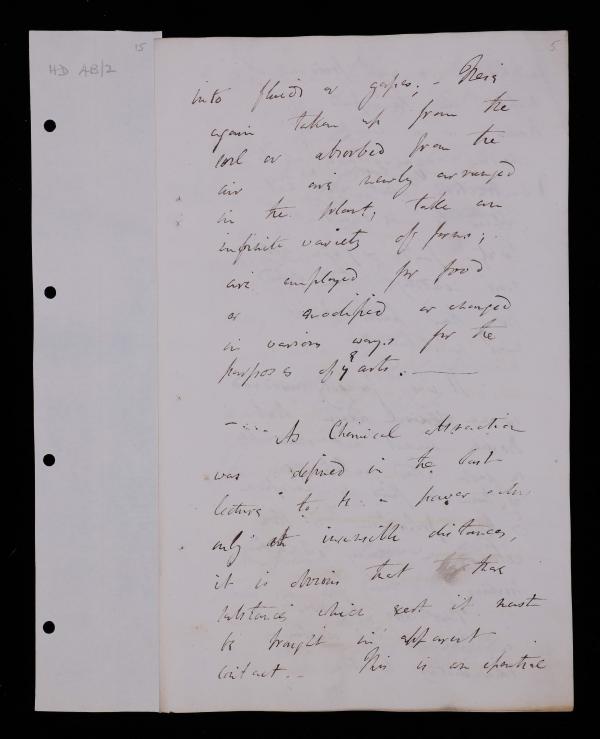 15
HD AB/2
5
into fluids or gases; - These
again taken up from the
soil or absorbed from the
air are newly arranged
in the plant, take an
infinite variety of forms;
are employed for food
or modified or changed
in various ways for the
purposes of y arts. -
As Chemical Attraction
was defined in the last
lecture to be a power
only at invisible distances,
it is obvious that these
substances which exert it must
be brought in apparent
contact. - This is an essential